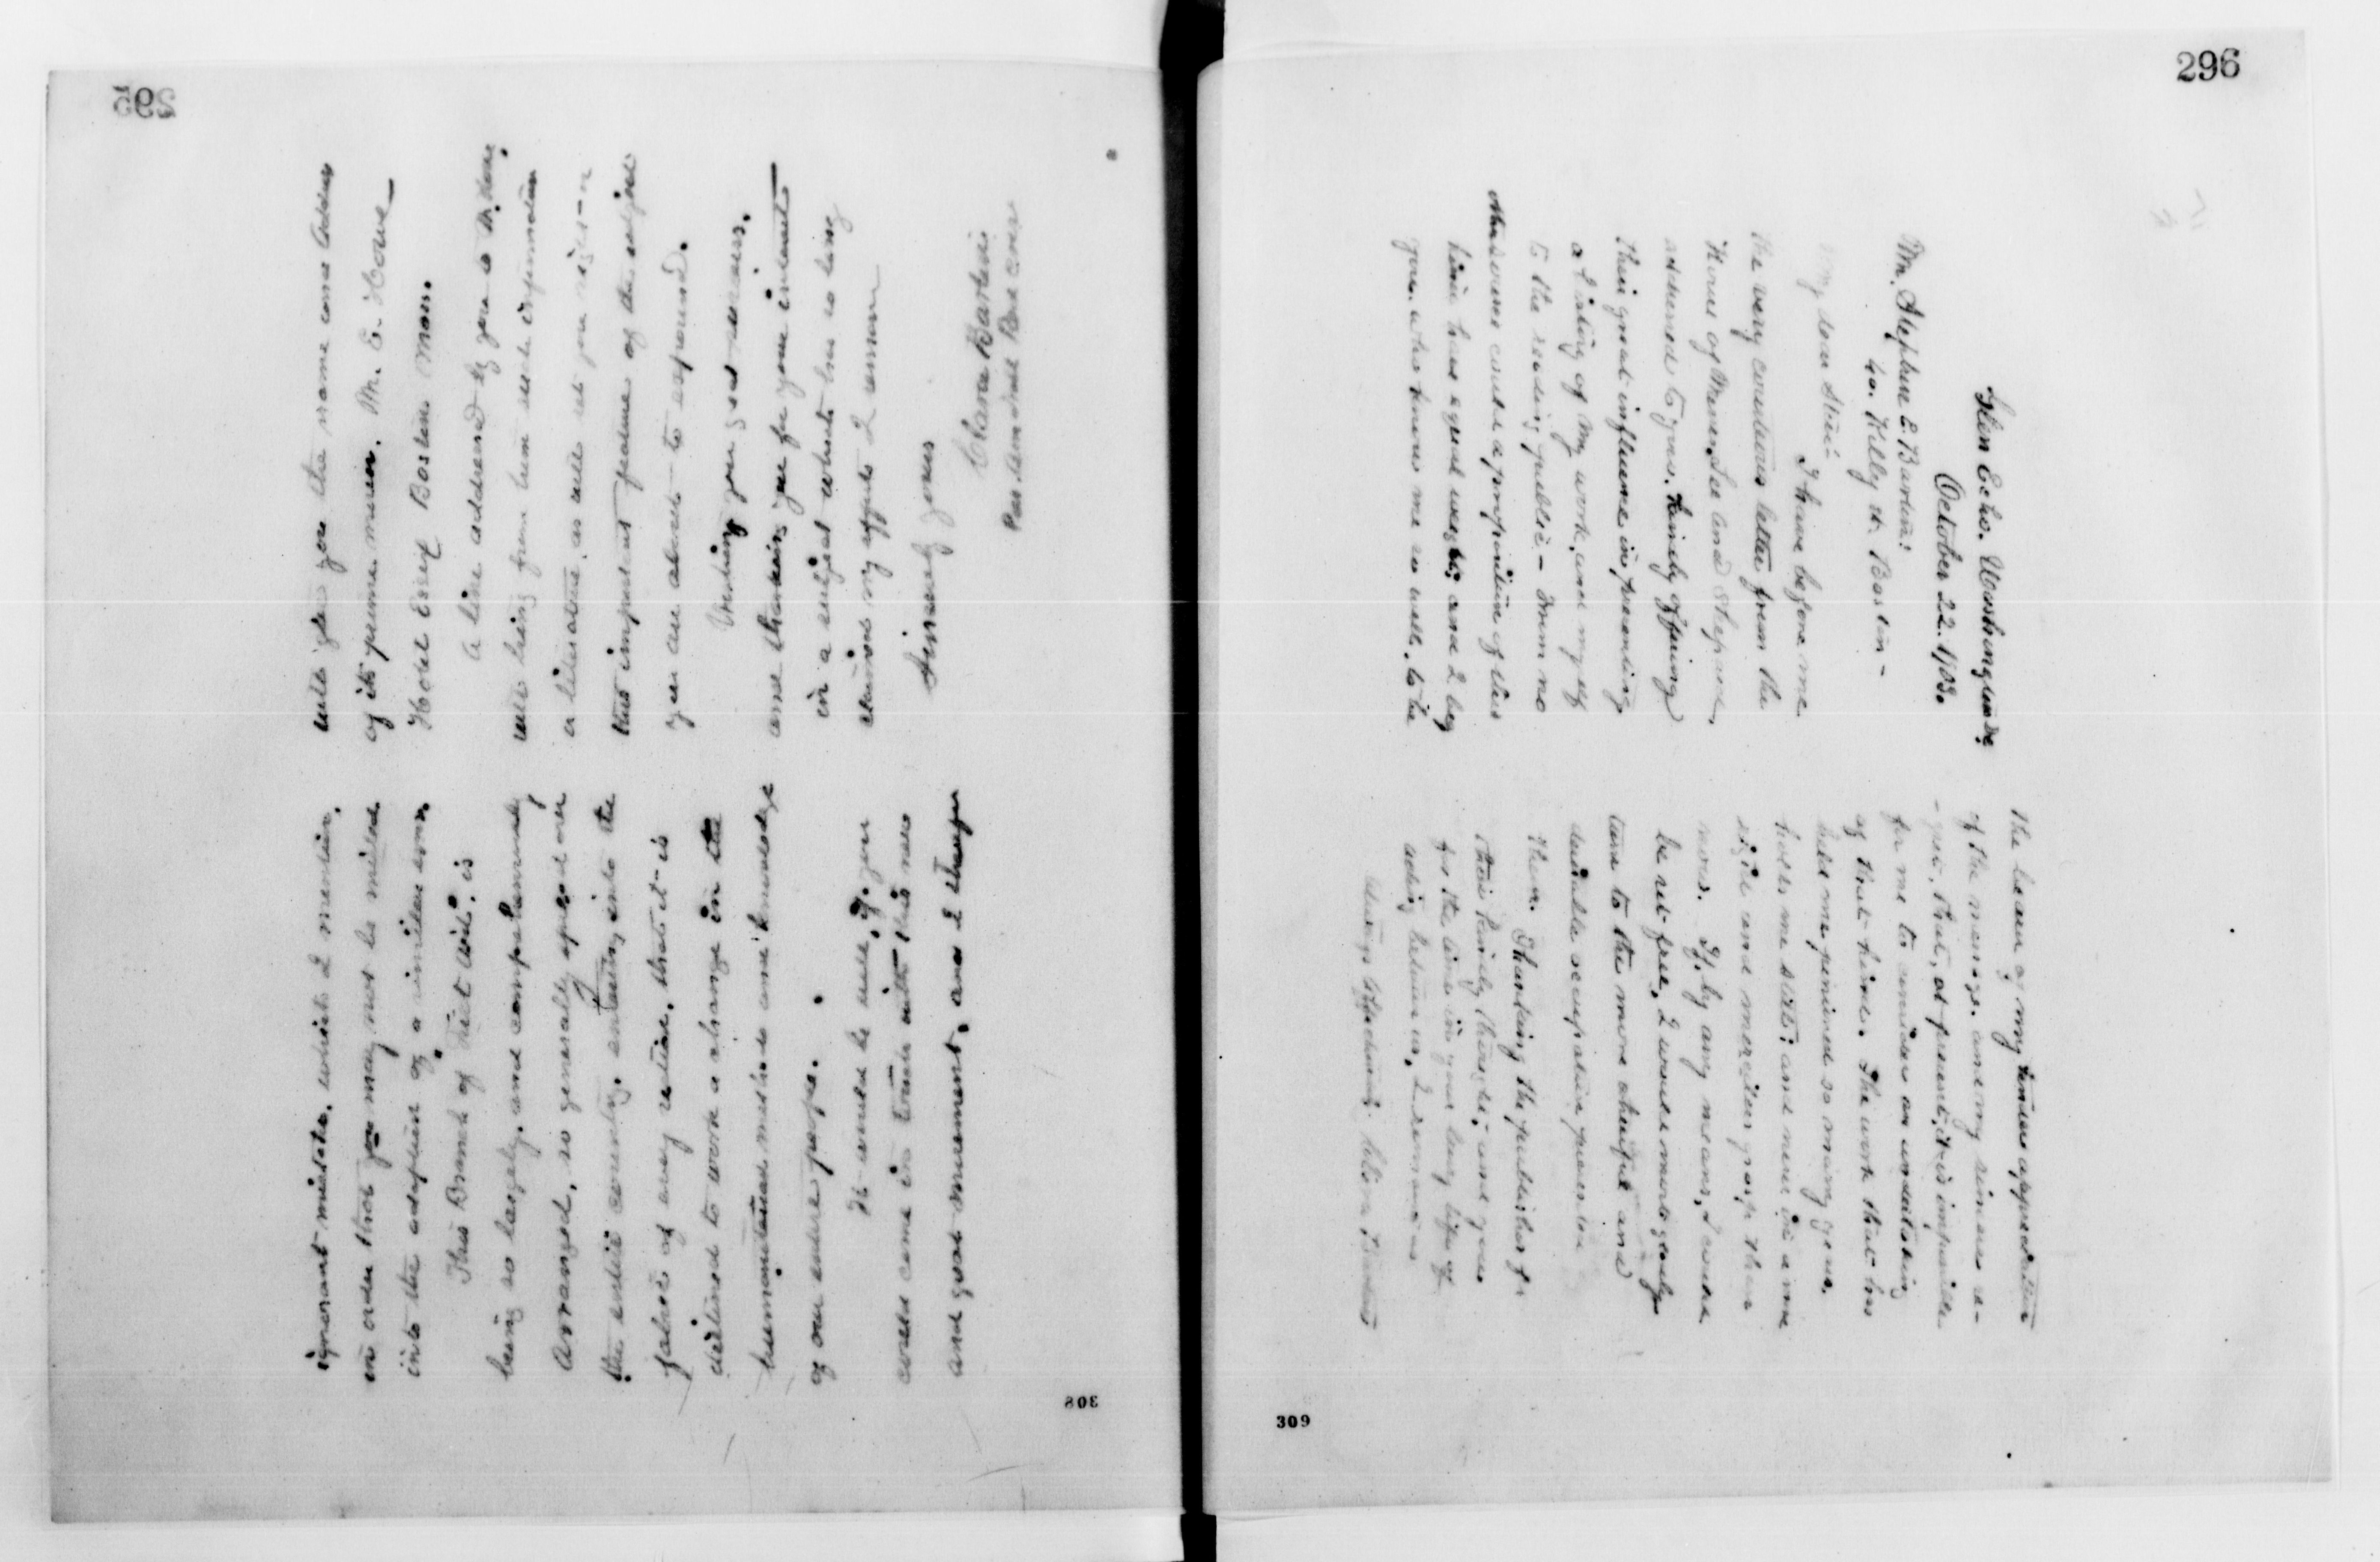 295
ignorant mistake, which I mention,
in order that you may not be misled
into the adoption of a similar error,
This Branch of First Aid, is
being so largely, and comprehensively
arranged, so generally spread over
the entire country, entering into the
fabric of every nation, that it is
destined to work a change in the
humanitarian methods and knowledge
of our entire people.
It would be well, if you
could come in touch with this new
and great movement, and I
will give you the name and address
of its pioneer. Mr. E. Howe
Hotel Essex Boston Mass.
A line addressed by you to Mr. Howe,
will bring from him such information
or literature, as will set you right in
that important feature of the subject
you are about to expound.
Wishing you great success,
and thanking you for your interest
in a subject which has so long
claimed my efforts I remain
Sincerely yours
Clara Barton
Pres. American Red Cross
308
296
Glen Echo. Washington D.C.
October 22. 1903.
Mr. Stephen E. Barton:
40. Kilby St. Boston -
My dear Stevie
I have before me
the very courteous letter from the
House of Messrs. Lee and Shepard,
addressed to you. Kindly offering
their great influence in presenting
a history of my work, and myself
to the reading public - From no
other source could a proposition of this
kind have equal weight; and I beg
you, who know me so well, to be
the bearer of my sincere appreciation
of the message. and my sincere re-
gret, that, at present, it is impossible
for me to consider an undertaking
of that kind. The work that has
held me pinioned so many years,
holds me still; and never in a more
rigid and merciless grasp than
now. If, by any means, I could
be set free, I would most gladly
turn to the more cheerful and
desirable occupation presented
them. Thanking the publishers for
their kindly thought; and you
for the time in your busy life of
acting between us, I remain as
always affectionately Clara Barton
309